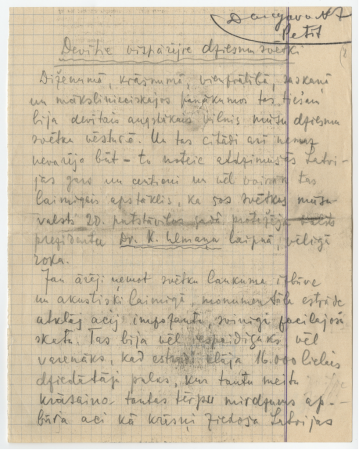 Daugava N 7
Petit
Devītie vispārējie dziesmu svētki
Diženumā, krāšņumā, vienprātībā, saskaņā
un mākslinieciskajos panākumos tas tiešām
bija devītais augstākais vilnis mūsu dziesmu
svētku vēsturē. Un tas citādi arī nemaz
nevarēja būt – to noteic atdzimušās Latvi-
jas gars un centieni un vēl vairāk tas
laimīgais apstāklis, ka šos svētkus mūsu
valsts 20. patstāvības gadā
prezidenta Dr. K. Ulmaņa laipnā, vēlīgā
roka.
Jau ārēji ņemot svētku laukuma izbūve
un akustiski laimīgā, monumentālā estrāde
atklāj acij impozantu, svinīgi pacilājošu
skatu. Tas bija vēl varenāks,
kad estrādi klāja 16.000 lielais
dziedātāju pulks, kur tautu meitu
krāsaino tautas tērpu mirdzums ap-
būra aci kā krāšņi ziedoša Latvijas